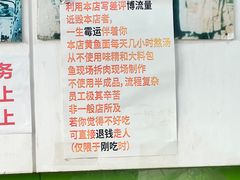 利用本店写差评博流量
诋毁本店者,
一生霉运伴着你
本店黄鱼面每天几小时熬汤
从不使用味精和大料包
鱼现场拆肉现场制作
不使用半成品,流程复杂
员工极其辛苦
非一般店所及
若你觉得不好吃
可直接退钱走人
(仅限于刚吃时)
务
上
上